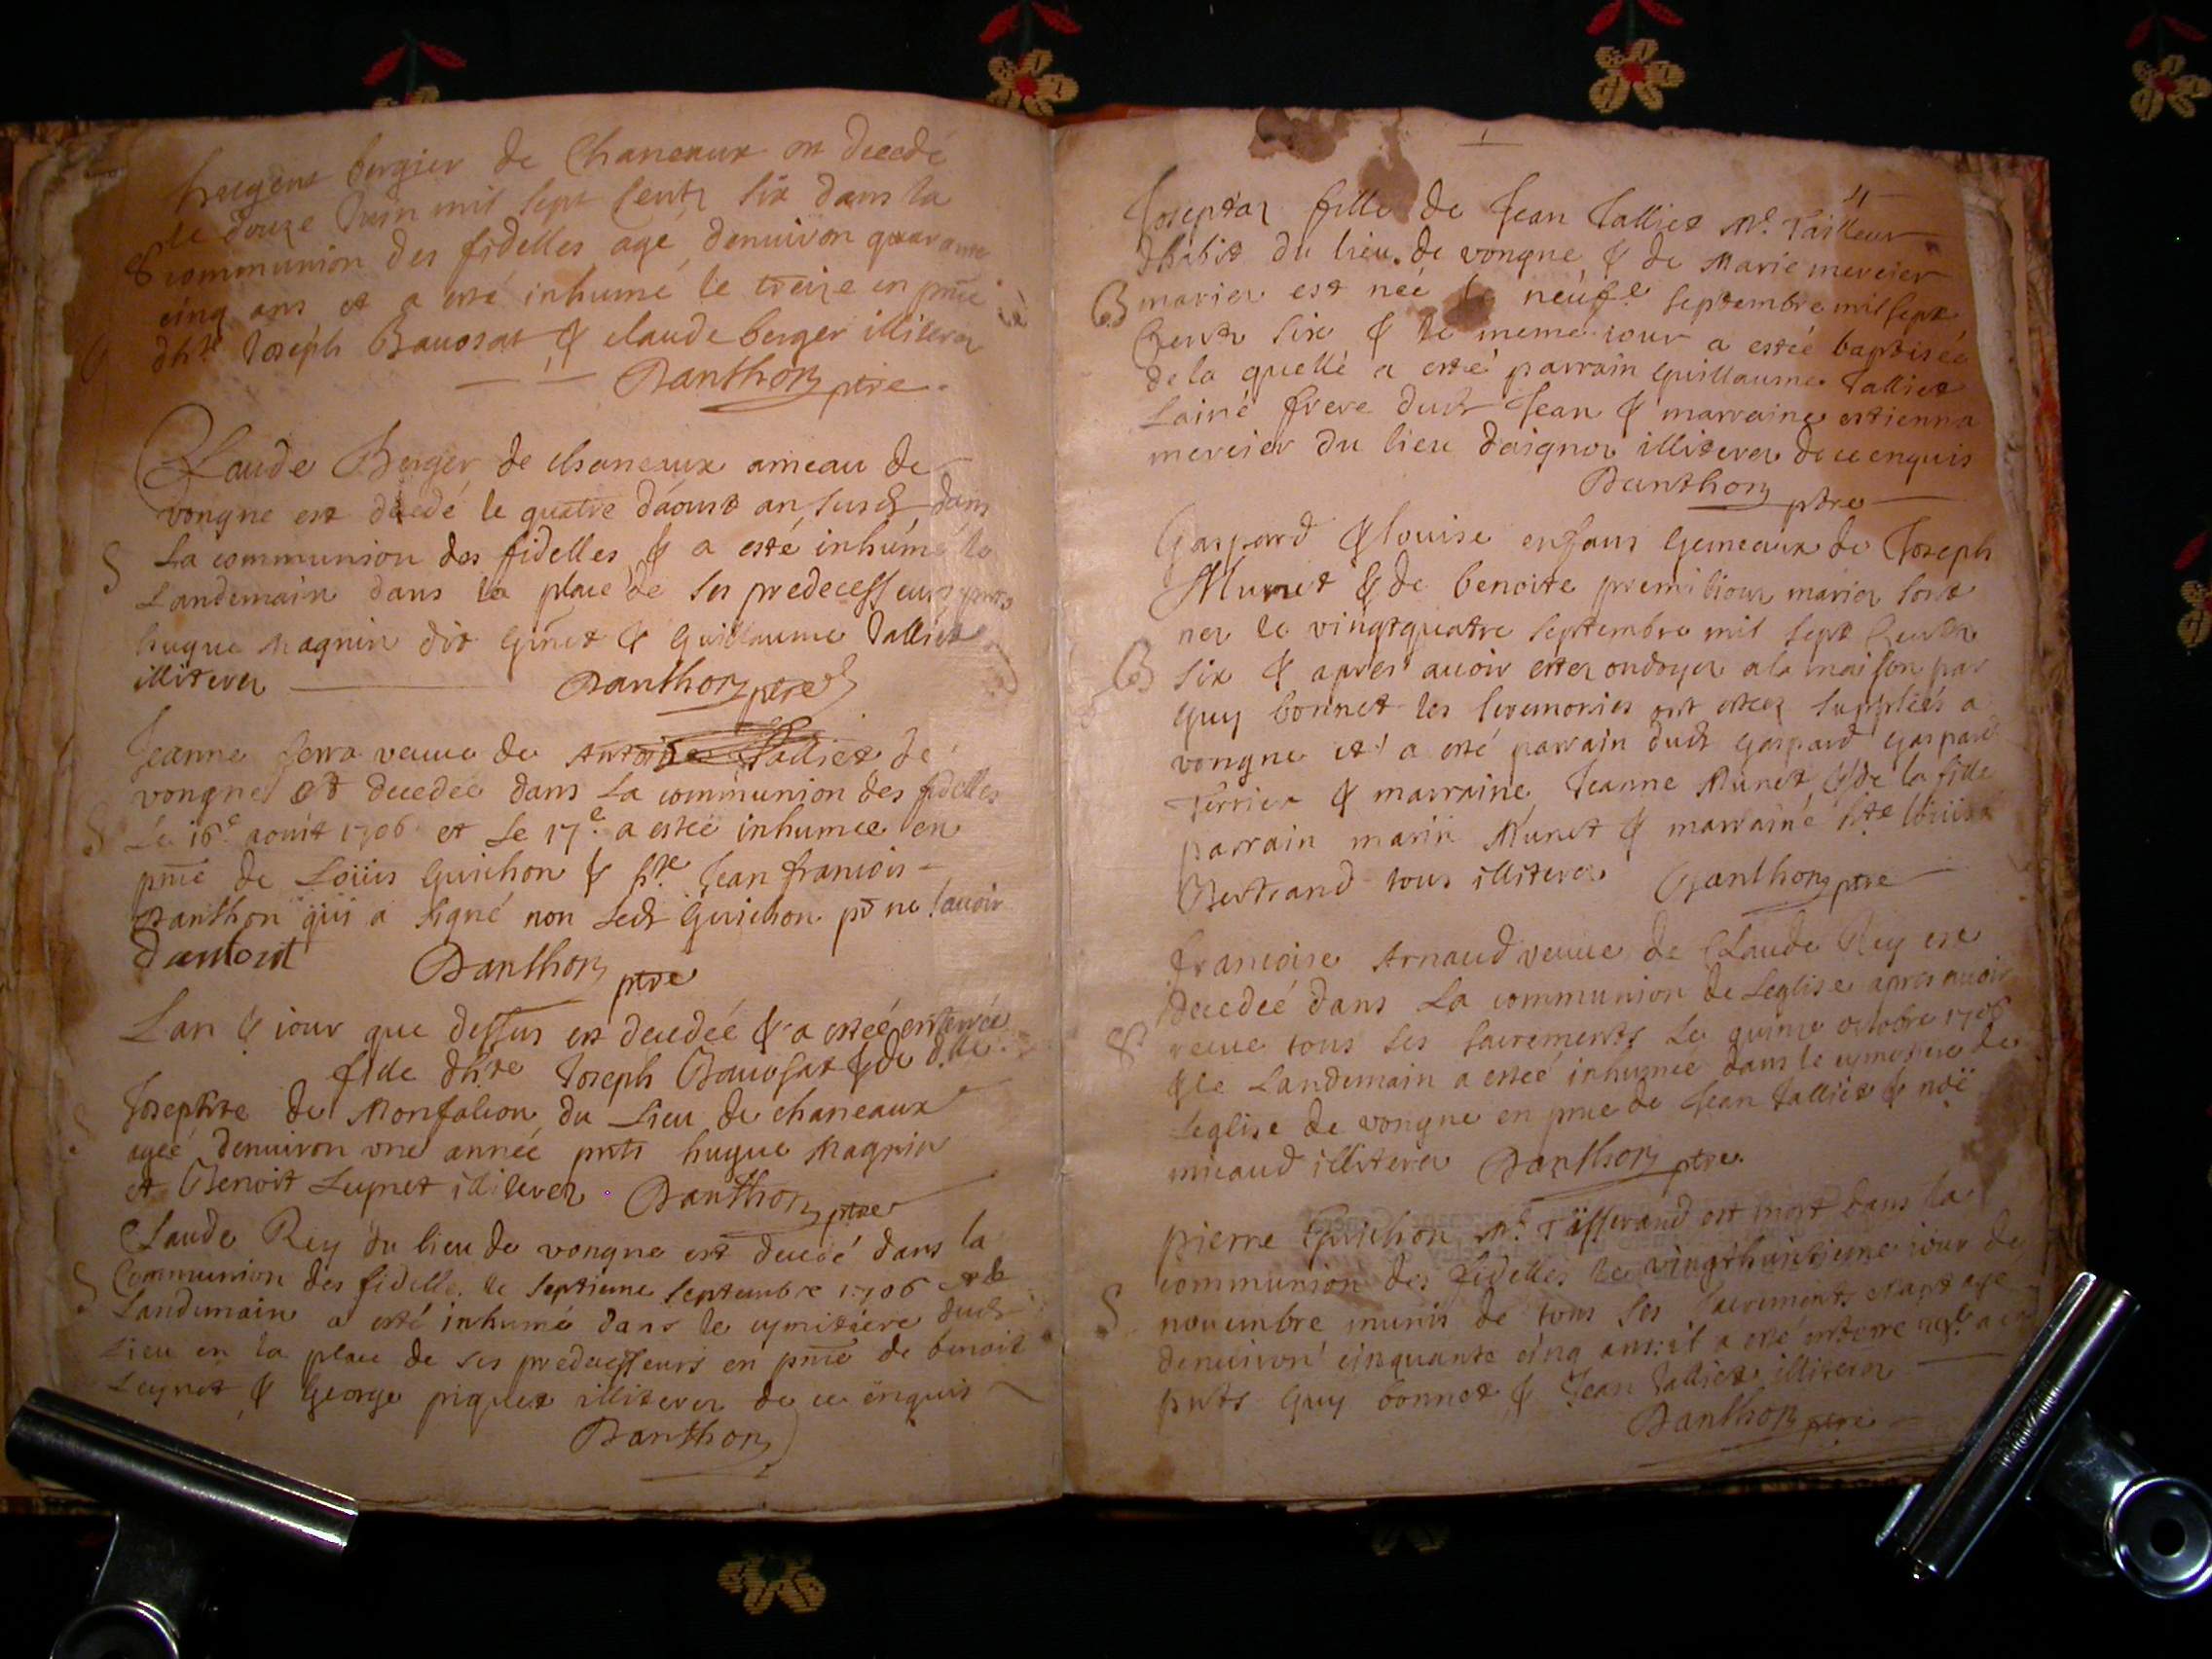 bergier de Chaneaux est decedé
le douze Juin mil sept Centz six dans la
communion des fidelles agé denuiron quarante
cinq ans et a esté inhumé le treize en pnce
dhle Joseph Bauosat & claude berger illiterez
Danthon ptre
Claude Berger de chaneaux ameau de
vongne est decedé le quatre daoust an susdt dans
La communion des fidelles & a esté inhumé le
Landemain dans la place de ses predecesseurs pnts
hugue Magnin dit Ginet & Guillaume Talliet
illiterez
Danthon ptre
Jeanne Serra veuue de Antoine Talliet de
vongne est decedée dans La communion des fidelles
Le 16e aout 1706 et Le 17e a esteé inhumee en
pnce de Loüis Guichon & hle Jean francois
Danthon qui a signé non Ledt Guichon pr ne sauoir
dantont
Danthon ptre
Lan & iour que dessus est decedeé & a esteé enterreé
fille dhle Joseph Bauosat & de dlle
Josephte de Monfalcon du Lieu de chaneaux
ageé denuiron vne année pnts hugue Magnin
et Benoit Leynet illiterez Danthon ptre
Claude Rey du lieu de vongne est decedé dans la
Communion des fidelle le septieme septembre 1706 et le
Landemain a esté inhumé dans le cymitiere dudt
Lieu en la place de ses predecesseurs en pnce de benoit
Leynet & George piquet illiterez de ce enquis
Danthon
4
fille de Jean Talliet Me Tailleur
dhabit du lieu de vongne & de Marie mercier
mariez est neé le neufe septembre mil sept
Centz six & le meme iour a esteé baptiseé
de la quelle a esté parrain Guillaume Talliet
Lainé frere dudt Jean & marraine estienna
mercier du lieu illiterez de ce enquis
Danthon ptre
Gaspard & louise enfans Gemeaux de Joseph
Munet & de benoite mariez sont
nez le vingtquatre septembre mil sept Centz
six & apres auoir estez ondoyez a la maison par
Guy bonnet les Ceremonies ont esteez suppleés a
vongne et a esté parrain dudt Gaspard Gaspard
Terrier & marraine Jeanne Munet & de la fille
parrain marin Munet & marraine hte Louise
Bertrand tous illiterez Danthon ptre
francoise Arnaud veuue de Claude Rey est
decedeé dans La communion de Leglise apres auoir
receue tous ses sacrements Le quinze octobre 1706
& le Landemain a esteé inhumeé dans le cymetiere de
Leglise de vongne en pnce de Jean Talliet & noë
micaud illiterez Danthon ptre
pierre Guichon Me Tisserand est mort dans la
communion des fidelles le vingthuictieme iour de
nouembre munis de tous ses sacrements etant agé
denuiron cinquante cinq ans il a esté enterré
pnts Guy bonnet & Jean Talliet illiterez
Danthon ptre